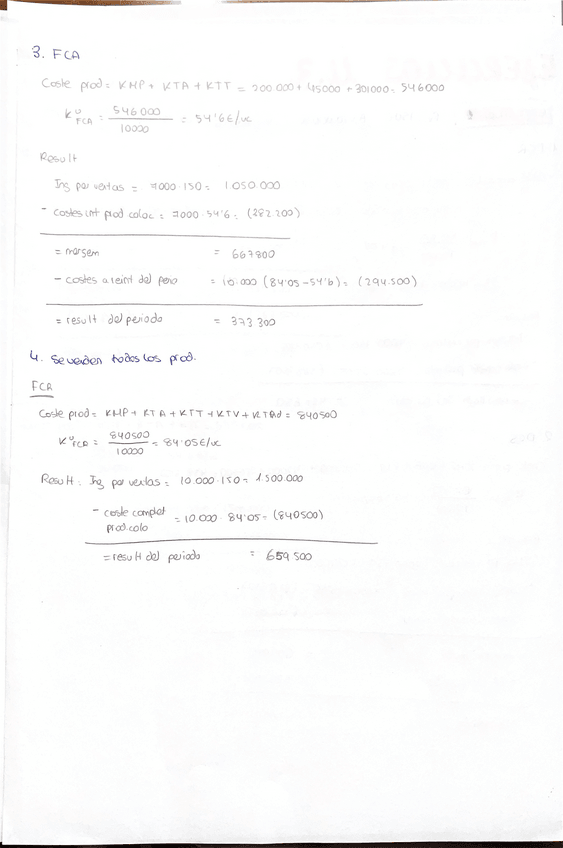 3. FCA
Coste prod = KMP + KTA + KTT = 200.000 + 45000 + 301000 = 546000
K^u FCA = 546000 / 10000 = 54'6€/uc
Result
Ing por ventas = 7000·150 = 1.050.000
- costes int prod coloc = 7000·54'6 = (282.200)
= margem = 667800
- costes a reint del perio = 10.000 (84'05-54'6) = (294.500)
= result del periodo = 373.300
4. Se venden todos los prod.
FCR
Coste prod = KMP + KTA + KTT + KTV + KTAd = 840500
K^u FCR = 840500 / 10000 = 84'05€/uc
Result: Ing por ventas = 10.000·150 = 1.500.000
- coste complet prod.colo = 10.000·84'05 = (840500)
= result del periodo = 659.500